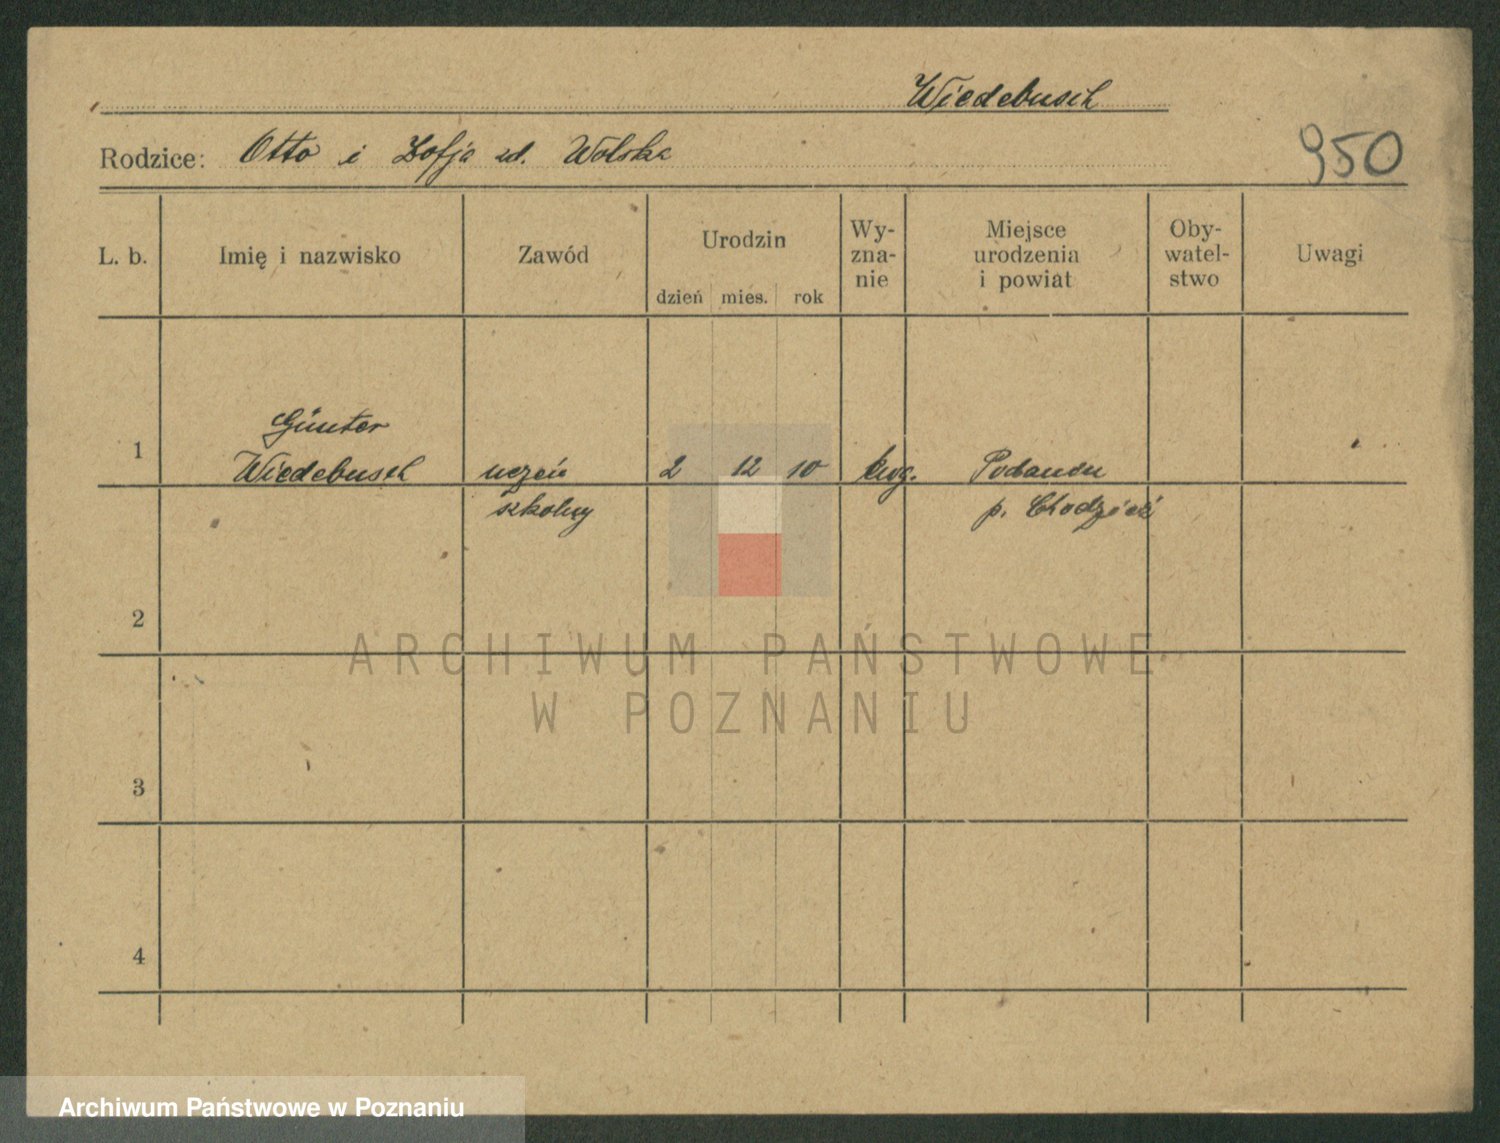 Wiedebusch
Rodzice: Otto i Zofja ur. Wolska
950
L. b.
Imię i nazwisko
Zawód
Urodzin
dzień mies. rok
Wy-
zna-
nie
Miejsce
urodzenia
i powiat
Oby-
watel-
stwo
Uwagi
Günter
1 Wiedebusch uczeń 2 12 10 ewg. Podanin
szkolny p. Chodzież
2
3
4
ARCHIWUM PAŃSTWOWE
W POZNANIU
Archiwum Państwowe w Poznaniu